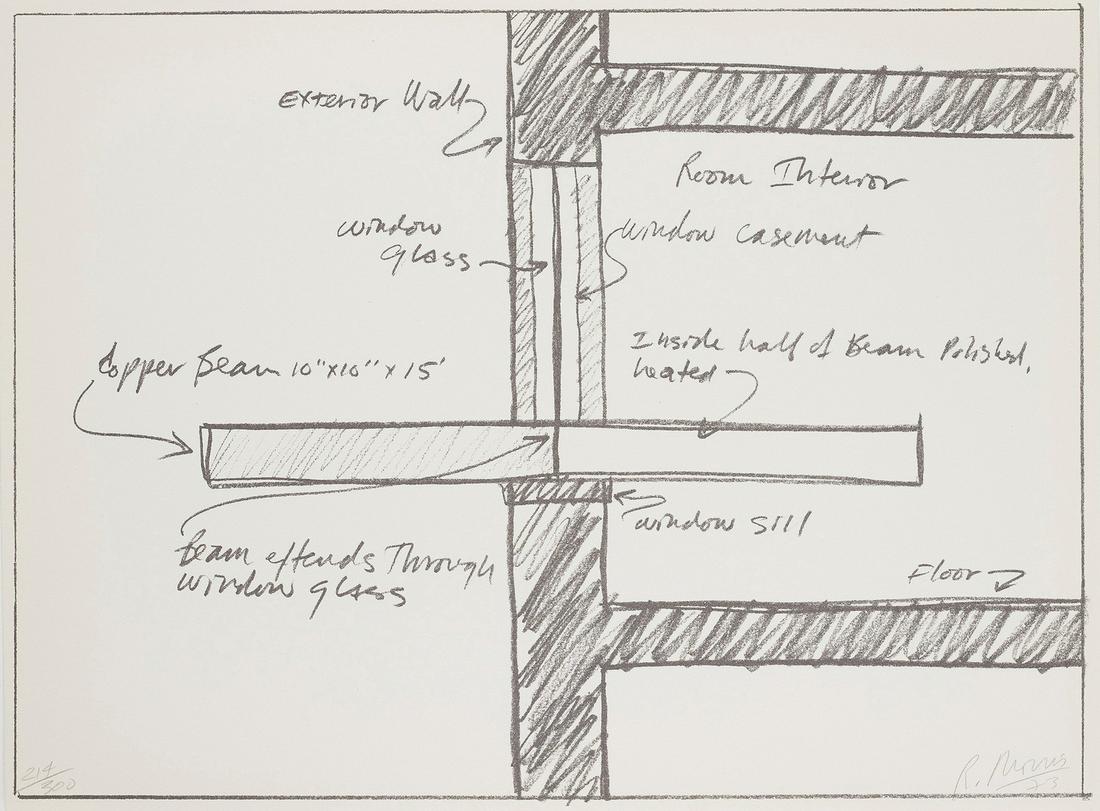 Exterior Wall
Room Interior
window
glass
window casement
Inside half of Beam Polished,
heated
Copper Beam 10"x10" x 15'
window sill
Beam extends Through
window glass
Floor
214/300
R. Morris
73